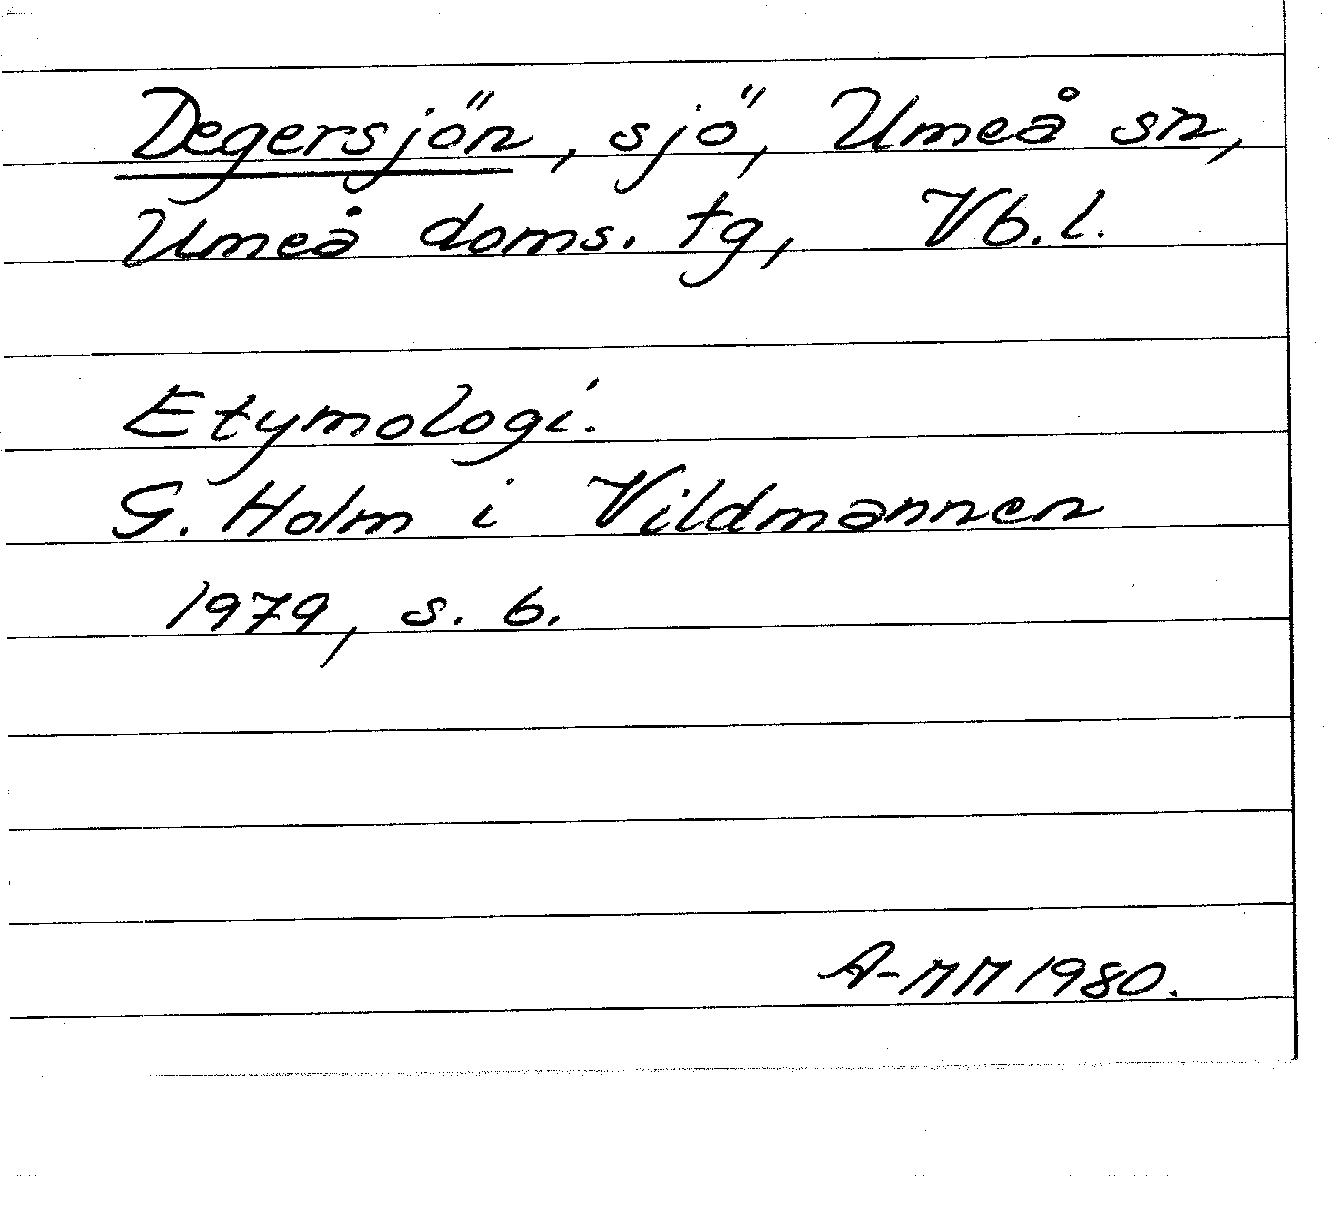 Degersjön, sjö, Umeå sn,
Umeå doms. tg, Vb.l.
Etymologi.
G. Holm i Vildmannen
1979, s. 6.
A-MM 1980.